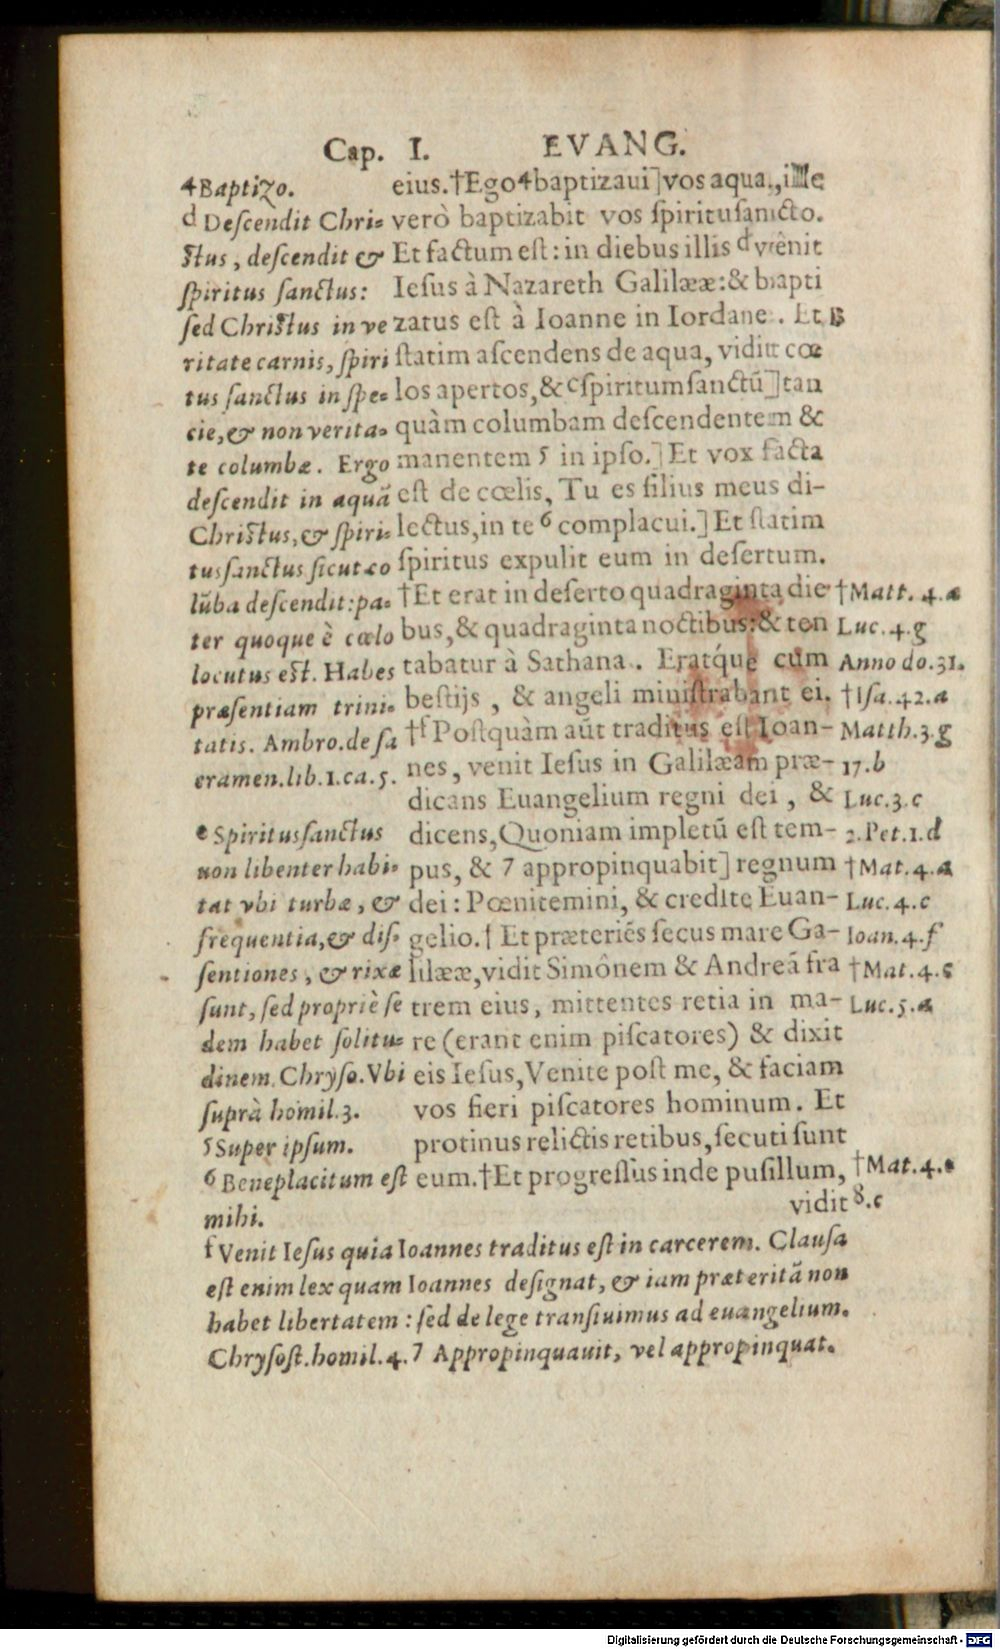 Cap. I. EVANG.
eius.†Ego⁴baptizaui]vos aqua,ille
verò baptizabit vos ſpirituſancto.
Et factum eſt: in diebus illis ᵈvênit
Ieſus à Nazareth Galilææ:& bapti
zatus eſt à Ioanne in Iordane. Et B
ſtatim aſcendens de aqua, vidit cœ
los apertos,& ᶜſpiritumſanctū]tan
quàm columbam deſcendentem &
manentem 5 in ipſo.] Et vox facta
eſt de cœlis, Tu es filius meus di-
lectus,in te ⁶ complacui.] Et ſtatim
ſpiritus expulit eum in deſertum.
†Et erat in deſerto quadraginta die
bus,& quadraginta noctibus:& ten
tabatur à Sathana. Eratq́ue cùm
beſtijs , & angeli miniſtrabant ei.
†ᶠPoſtquàm aūt traditus eſt Ioan-
nes, venit Ieſus in Galilæam præ-
dicans Euangelium regni dei , &
dicens,Quoniam impletū eſt tem-
pus, & 7 appropinquabit] regnum
dei: Pœnitemini, & credite Euan-
gelio.† Et præteriẽs ſecus mare Ga-
lilææ,vidit Simônem & Andreā fra
trem eius, mittentes retia in ma-
re (erant enim piſcatores) & dixit
eis Ieſus,Venite poſt me, & faciam
vos fieri piſcatores hominum. Et
protinus relictis retibus,ſecuti ſunt
eum.†Et progreſſus inde puſillum,
vidit
4 Baptizo.
ᵈ Deſcendit Chri-
ſtus, deſcendit &
ſpiritus ſanctus:
ſed Chriſtus in ve
ritate carnis, ſpiri
tus ſanctus in ſpe-
cie,& non verita-
te columbæ. Ergo
deſcendit in aquā
Chriſtus,& ſpiri-
tus ſanctus ſicut co
lūba deſcendit:pa-
ter quoque è cœlo
locutus eſt. Habes
præſentiam trini-
tatis. Ambro.de ſa
cramen.lib.1.ca.5.
ᵉ Spirituſſanctus
non libenter habi-
tat vbi turbæ, &
frequentia,& diſ-
ſentiones, & rixæ
ſunt, ſed propriè ſe
dem habet ſolitu-
dinem. Chryſo.Vbi
ſuprà homil.3.
5 Super ipſum.
6 Beneplacitum eſt
mihi.
†Matt. 4.a
Luc.4.g
Anno do.31.
†Iſa.42.a
Matth.3.g
17.b
Luc.3.c
2.Pet.1.d
†Mat.4.a
Luc.4.c
Ioan.4.f
†Mat.4.c
Luc.5.a
†Mat.4.c
8.c
ᶠ Venit Ieſus quia Ioannes traditus eſt in carcerem. Clauſa
eſt enim lex quam Ioannes deſignat, & iam præteritā non
habet libertatem : ſed de lege tranſiuimus ad euangelium.
Chryſoſt.homil.4. 7 Appropinquauit, vel appropinquat.
Digitalisierung gefördert durch die Deutsche Forschungsgemeinschaft - DFG